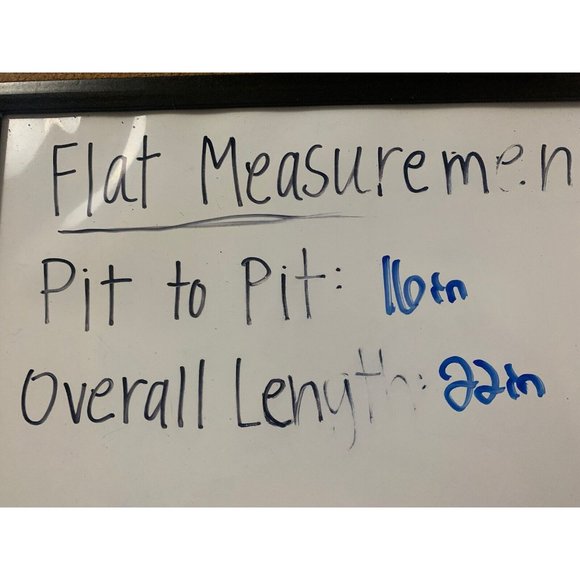 Flat Measuremen
Pit to Pit: 16in
Overall Length: 22in